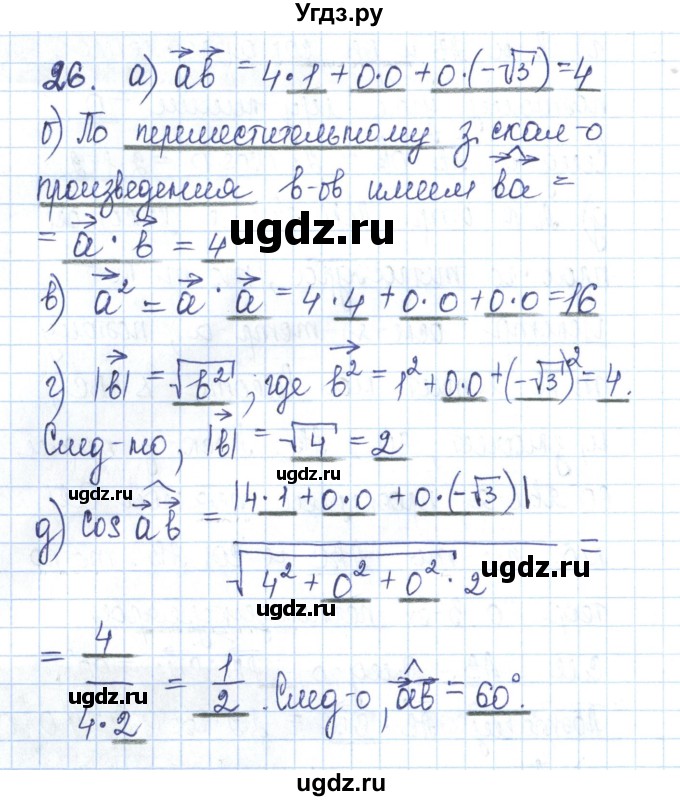 Угдз.ру
26. а) a⃗b⃗ = 4·1 + 0·0 + 0·(-√3) = 4
б) По переместительному з. скал-о
произведения в-ов имеем b⃗a⃗ =
= a⃗ · b⃗ = 4
ugdz.ru
ugdz.ru
в) a⃗² = a⃗ · a⃗ = 4·4 + 0·0 + 0·0 = 16
г) |b⃗| = √b⃗², где b⃗² = 1² + 0·0 + (-√3)² = 4.
След-но, |b⃗| = √4 = 2
ugdz.ru
ugdz.ru
д) cos a⃗b⃗ = |4·1 + 0·0 + 0·(-√3)| / √4² + 0² + 0² · 2 =
ugdz.ru
ugdz.ru
= 4 / 4·2 = 1/2. След-о, a⃗b⃗ = 60°.
ugdz.ru
ugdz.ru
ugdz.ru